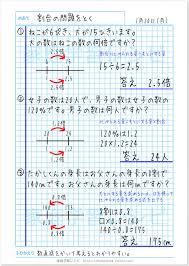 割合の問題をとく
①ねこが6ぴき、犬が15ひきいます。
犬の数はねこの数の何倍ですか？
2.5倍
15÷6=2.5
答え 2.5倍
②女子の数は20人で、男子の数は女子の数の
120%です。男子の数は何人ですか？
1.2倍
120%は1.2
20×1.2=24
答え 24人
③たかしくんの身長はお父さんの身長の8割で
140cmです。お父さんの身長は何cmですか？
0.8倍
8割は0.8
答え 175cm
数直線をかいて考えるとわかりやすい。